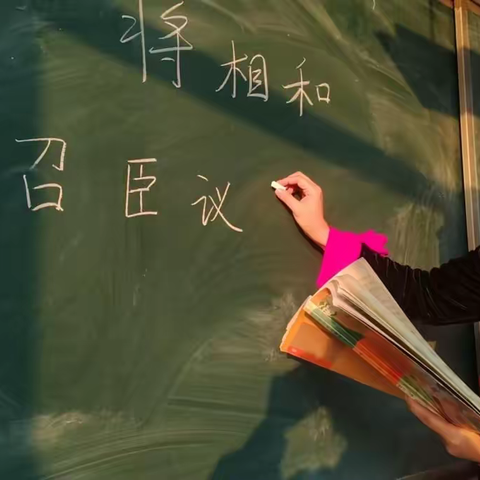 将相和
召臣议